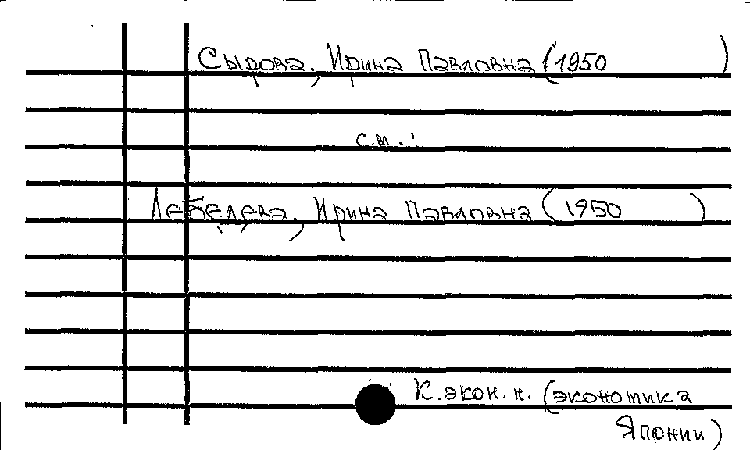 Сырова, Ирина Павловна (1950 )
см.:
Лебедева, Ирина Павловна (1950 )
К.экон.н. (экономика
Японии)